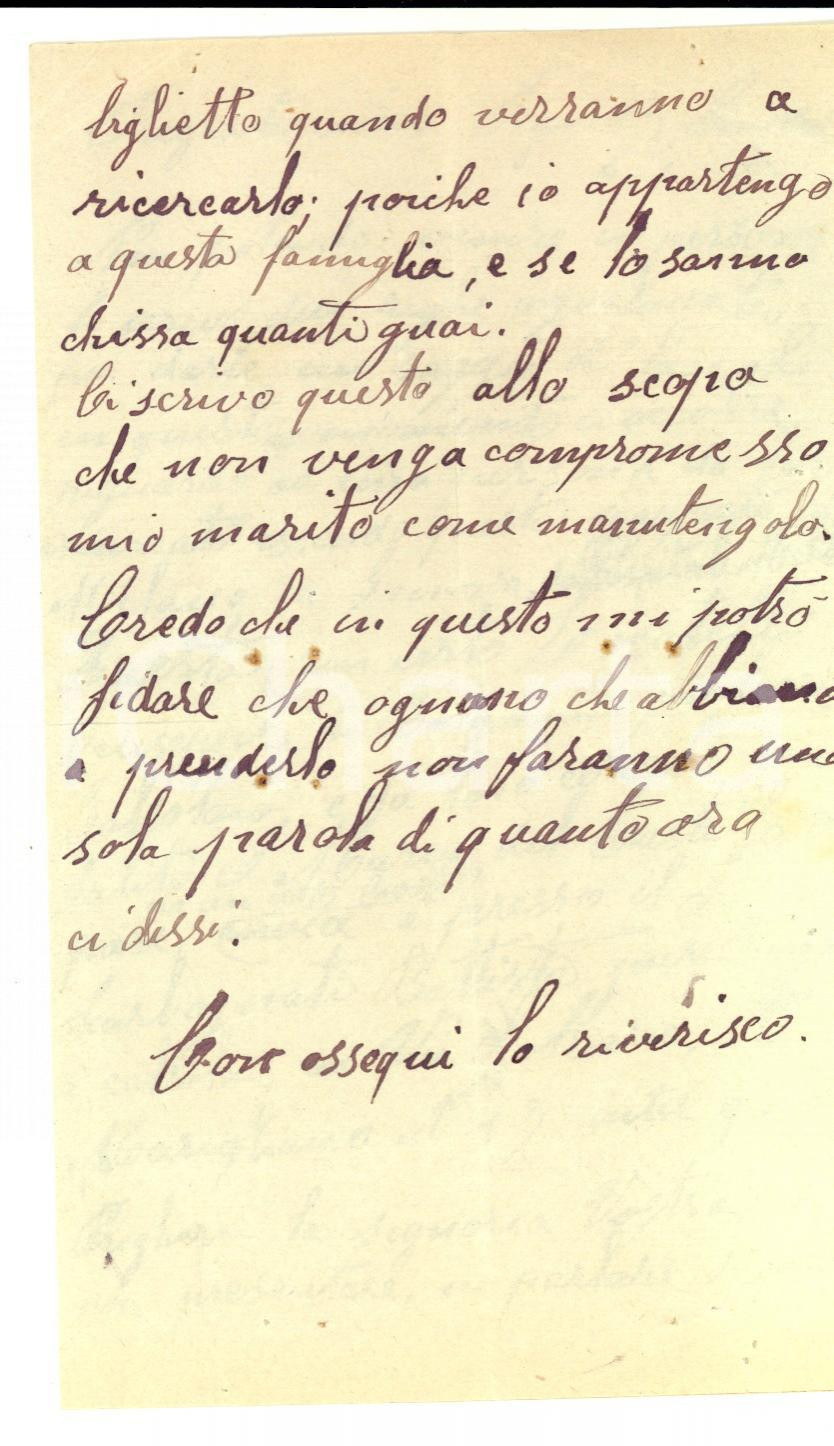 biglietto quando verranno a
ricercarlo; poiche io appartengo
a questa famiglia, e se lo sanno
chissa quanti guai.
Ci scrivo questo allo scopo
che non venga compromesso
mio marito come manutengolo.
Credo che in questo mi potrò
fidare che ognuno che abbiano
a prenderlo non faranno una
sola parola di quanto ora
ci dissi.
Con ossequi lo riverisco.